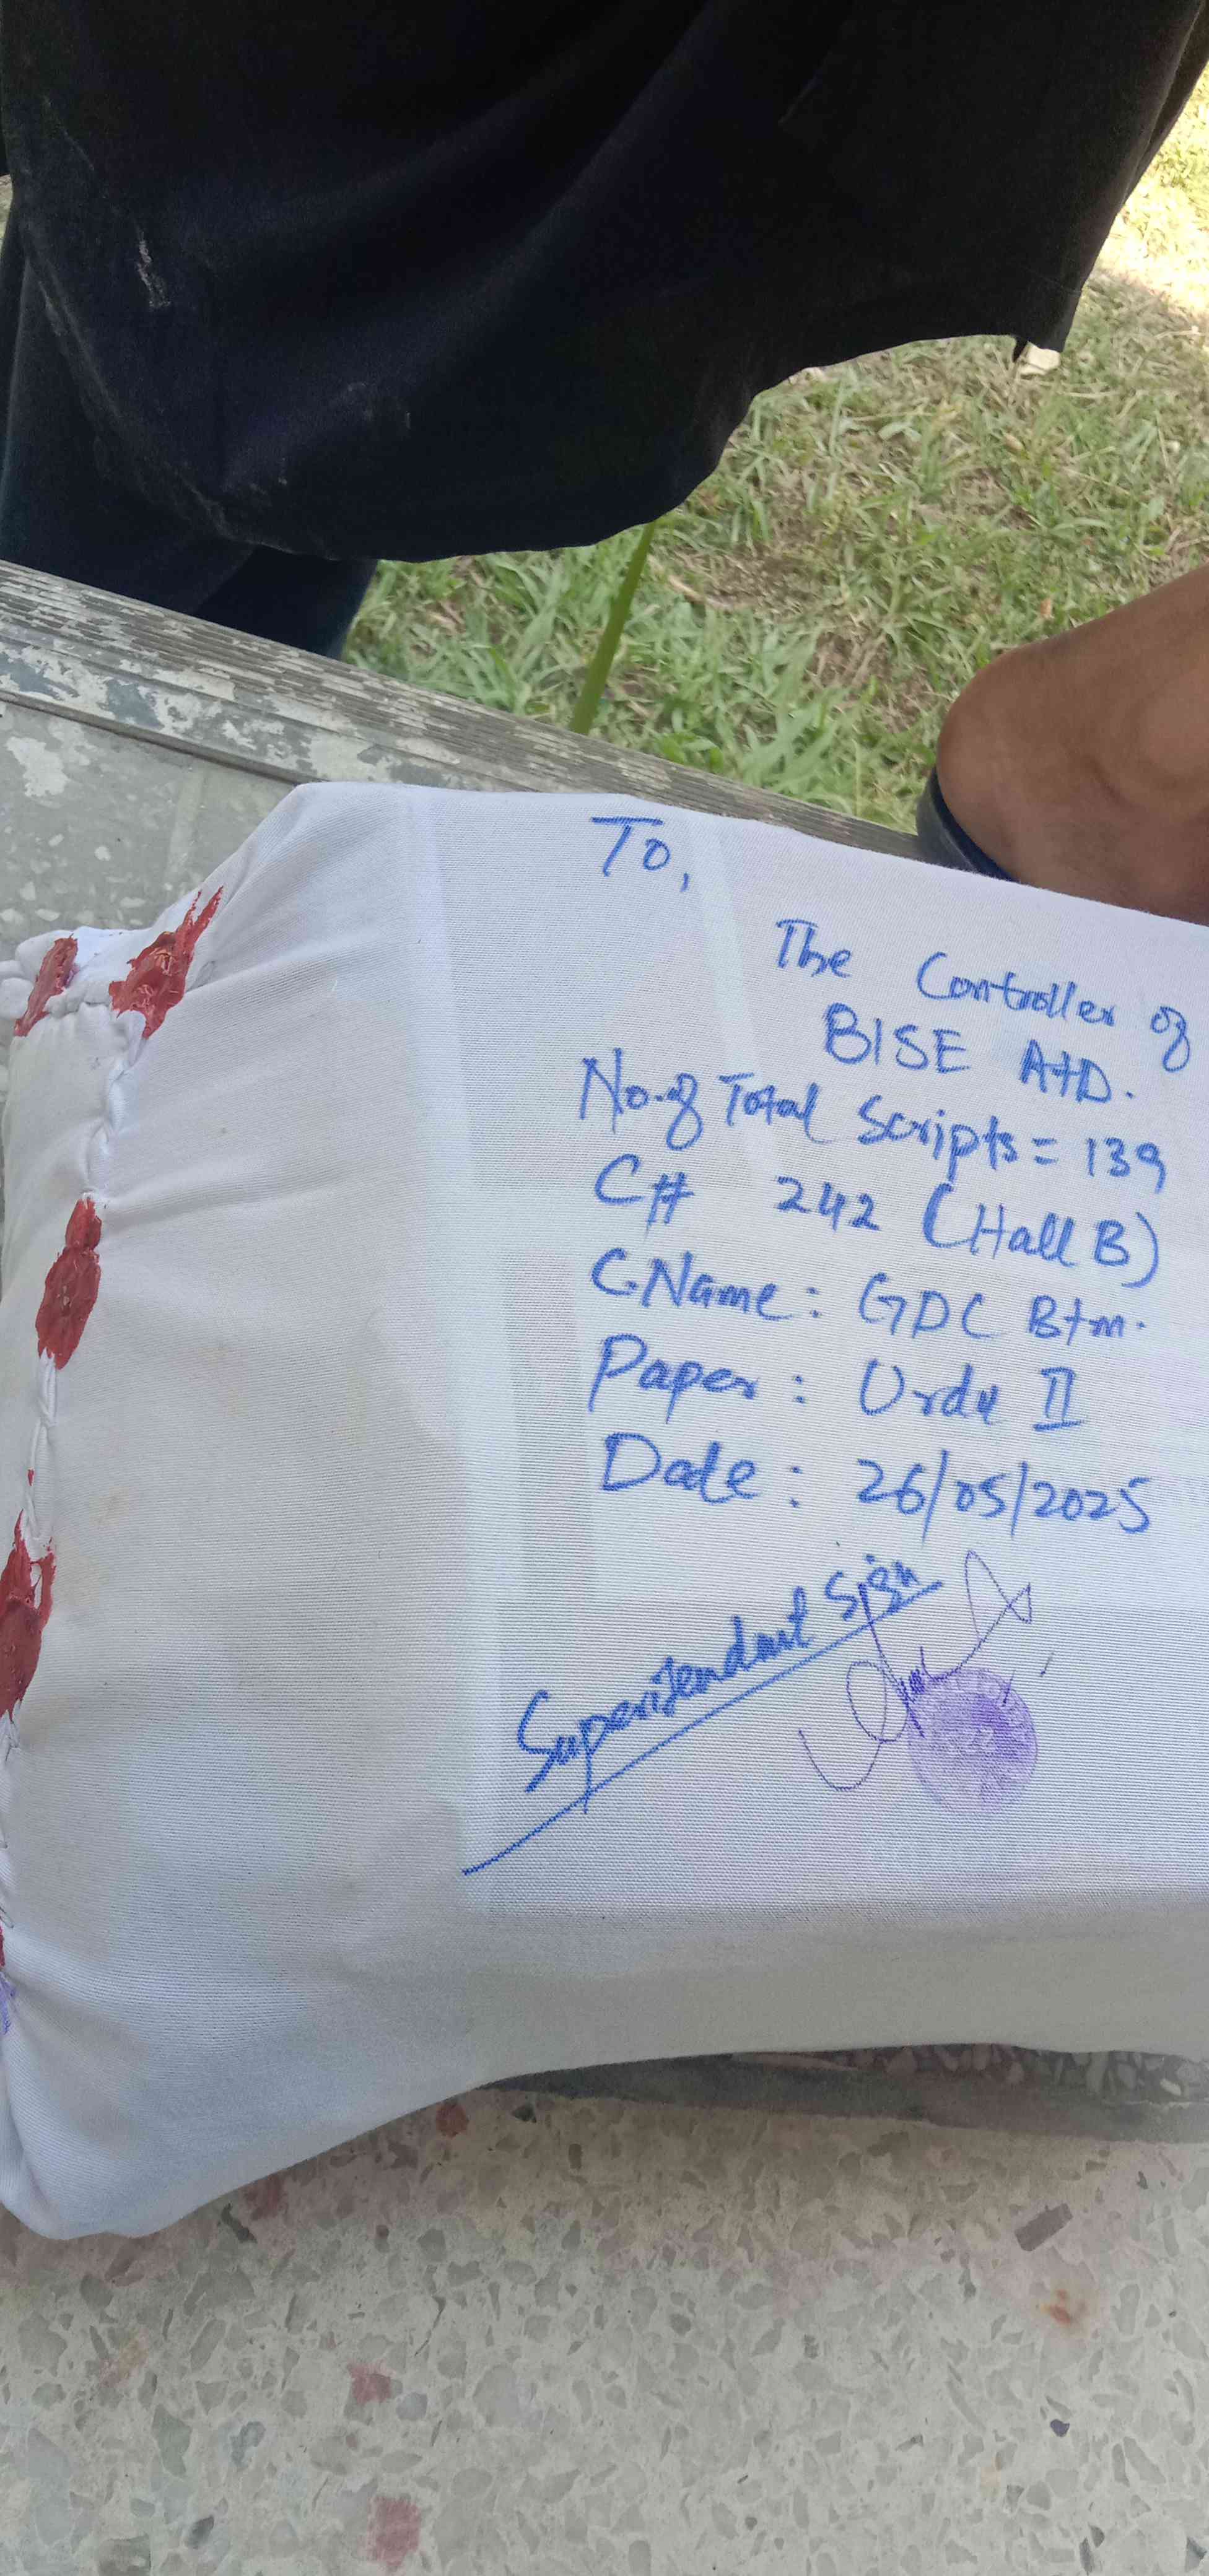 To,
The Controller of
BISE Atd.
No. of Total Scripts = 139
C# 242 (Hall B)
C.Name: GDC Btm.
Paper: Urdu II
Date: 26/05/2025
Superitendant Sign
522